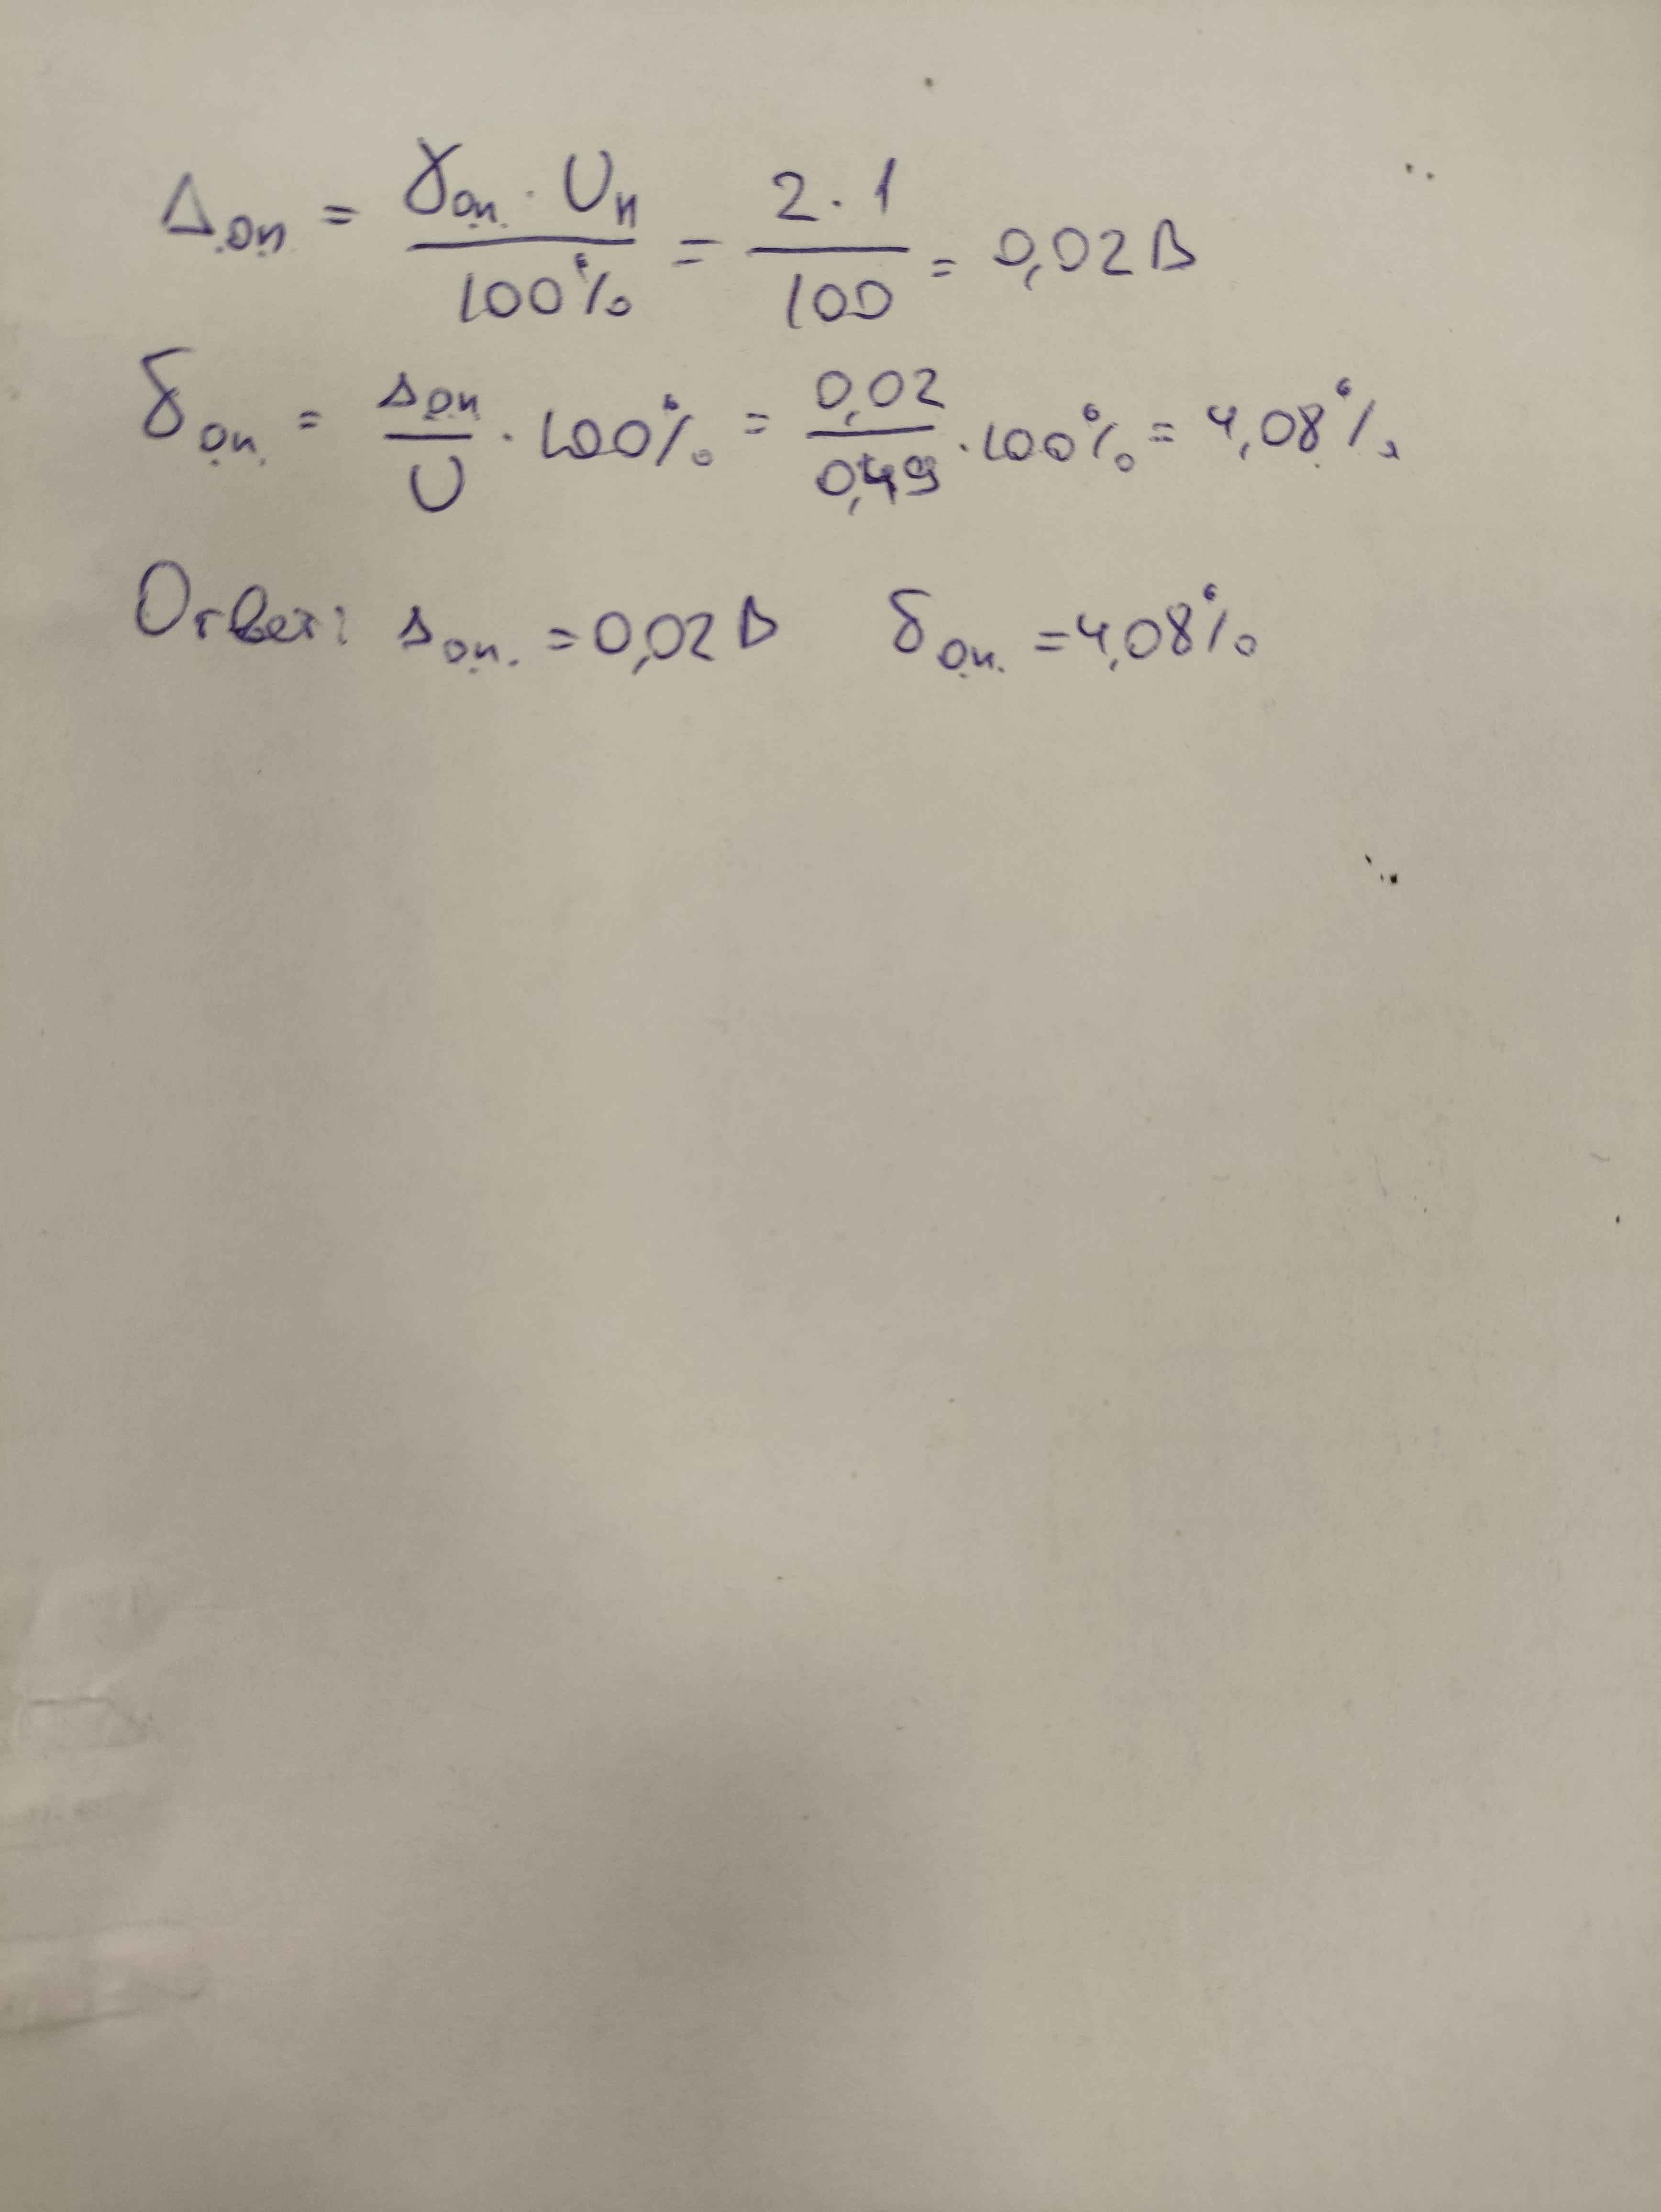 Δоп = γоп. · Uн / 100% = 2 · 1 / 100 = 0,02 В
δоп. = Δоп / U · 100% = 0,02 / 0,49 · 100% = 4,08%
Ответ: Δоп. = 0,02 В δоп. = 4,08%